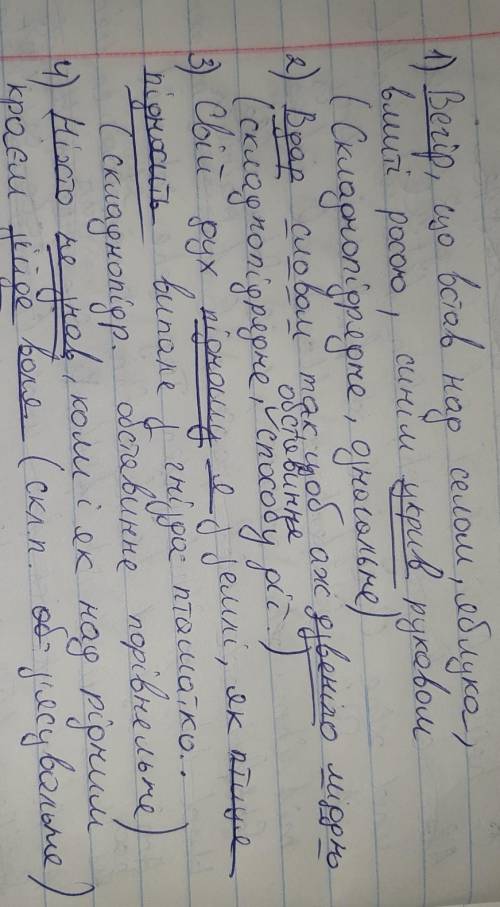 1) Вечір, що встав над селом, яблука,
вмиті росою, синім укрив рукавом
(Складнопідрядне, означальне)
2) Вдар словом так, щоб аж дзвеніло міддю
(складнопідрядне, обставинне способу дії)
3) Свій дух підношу я у землі, як птиця
підносить випале у гнізда пташатко..
(складнопідр. обставинне порівняльне)
4) Ніхто не знав, коли і як над рідним
краєм зійде воля (скл.п. з'ясувальне)